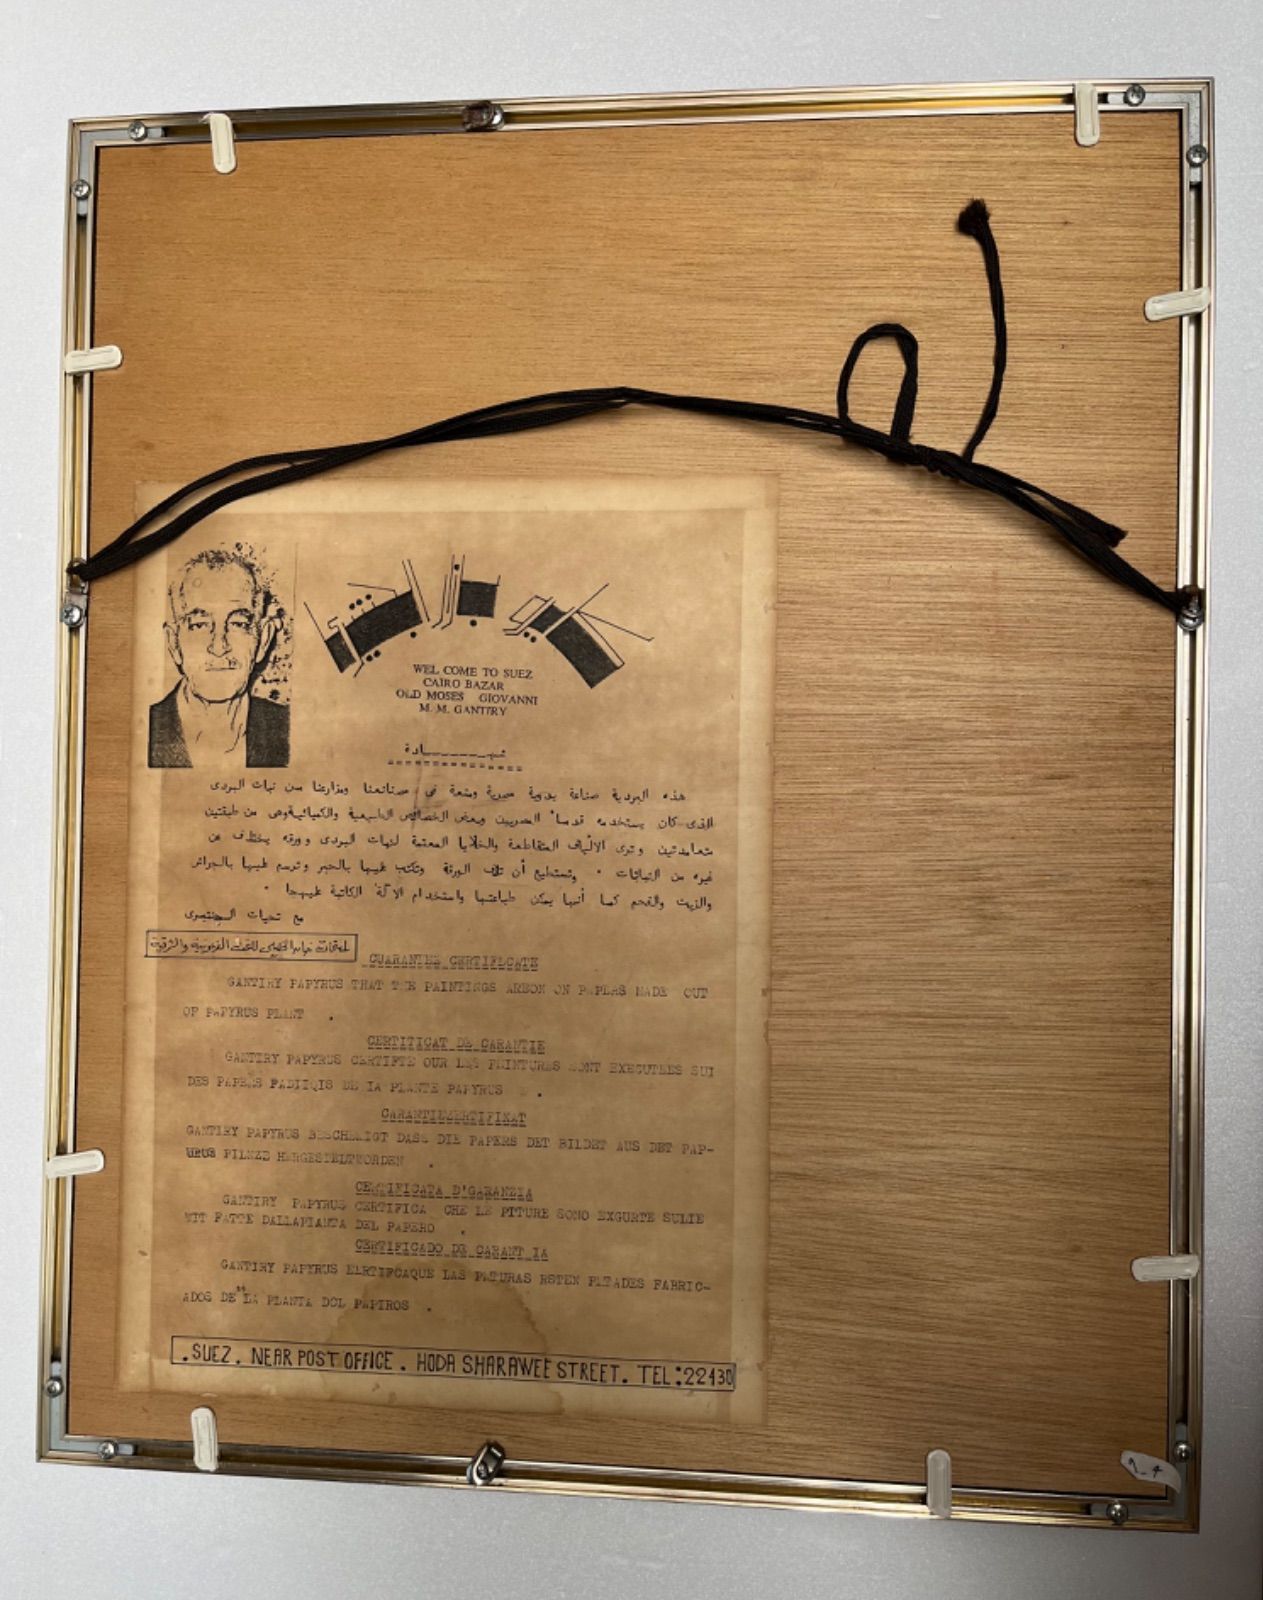 WEL COME TO SUEZ
CAIRO BAZAR
OLD MOSES GIOVANNI
M. M. GANTIRY
شهــــــادة
هذه البردية صناعة يدوية مصرية ومنعة فى مصانعنا ومزارعنا من نبات البردى
الذى كان يستخدمه قدماء المصريين وبعض الخصائص الطبيعية والكميائية وهى من طبقتين
متعامدتين وترى الالياف المتقاطعة والخلايا المعتمة لنبات البردى وورقه يختلف عن
غيره من النباتات . وتستطيع أن تلف الورقة وتكتب عليها بالحبر وترسم عليها بالجرائر
والزيت والفحم كما أنها يمكن طباعتها واستخدام الآلة الكاتبة عليها .
مع تحيات الجنتيرى
GUARANTEE CERTIFCATE
GANTIRY PAPYRUS THAT THE PAINTINGS AREON ON PAPLRS MADE OUT
OF PAPYRUS PLANT .
CERTITICAT DE GARANTIE
GANTIRY PAPYRUS CERTIFTE OUR LES PEINTURES SONT EXECUTEES SUI
DES PAPERS FADIIQIS DE IA PLANTE PAPYRUS .
GARANTIEZERTIFIKAT
GANTIRY PAPYRUS BESCHEINIGT DASS DIE PAPERS DET BILDET AUS DET PAP-
URUS PILNZE HERGESTELTWORDEN .
CERTIFICATA D'GARANZIA
GANTIRY PAPYRUS CERTIFICA CHE LE PITURE SONO EXGURTE SULIE
WIT FATTE DALLAPIANTA DEL PAPERO .
CERTIFICADO DE GARANT IA
GANTIRY PAPYRUS EERTIFCAQUE LAS PATURAS RSTEN PLTADES FABRIC-
ADOS DE LA PLANTA DOL PAPIROS .
.SUEZ. NEAR POST OFFICE. HODA SHARAWEE STREET. TEL:22430